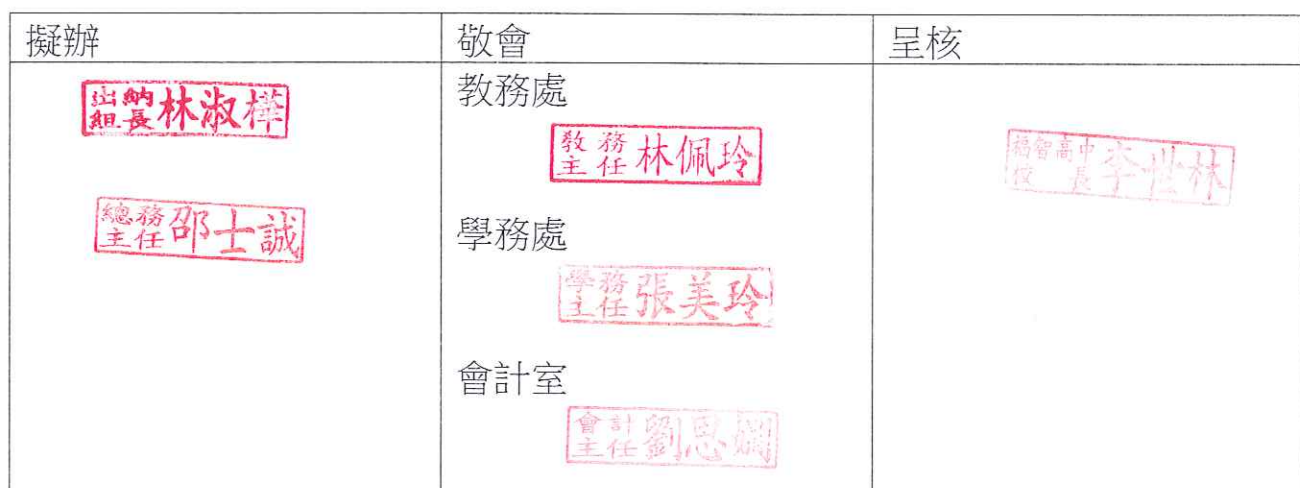 擬辦
敬會
呈核
出納組長林淑樺
總務主任邵士誠
教務處
教務主任林佩玲
學務處
學務主任張美玲
會計室
會計主任劉恩嫻
福智高中校長李世林